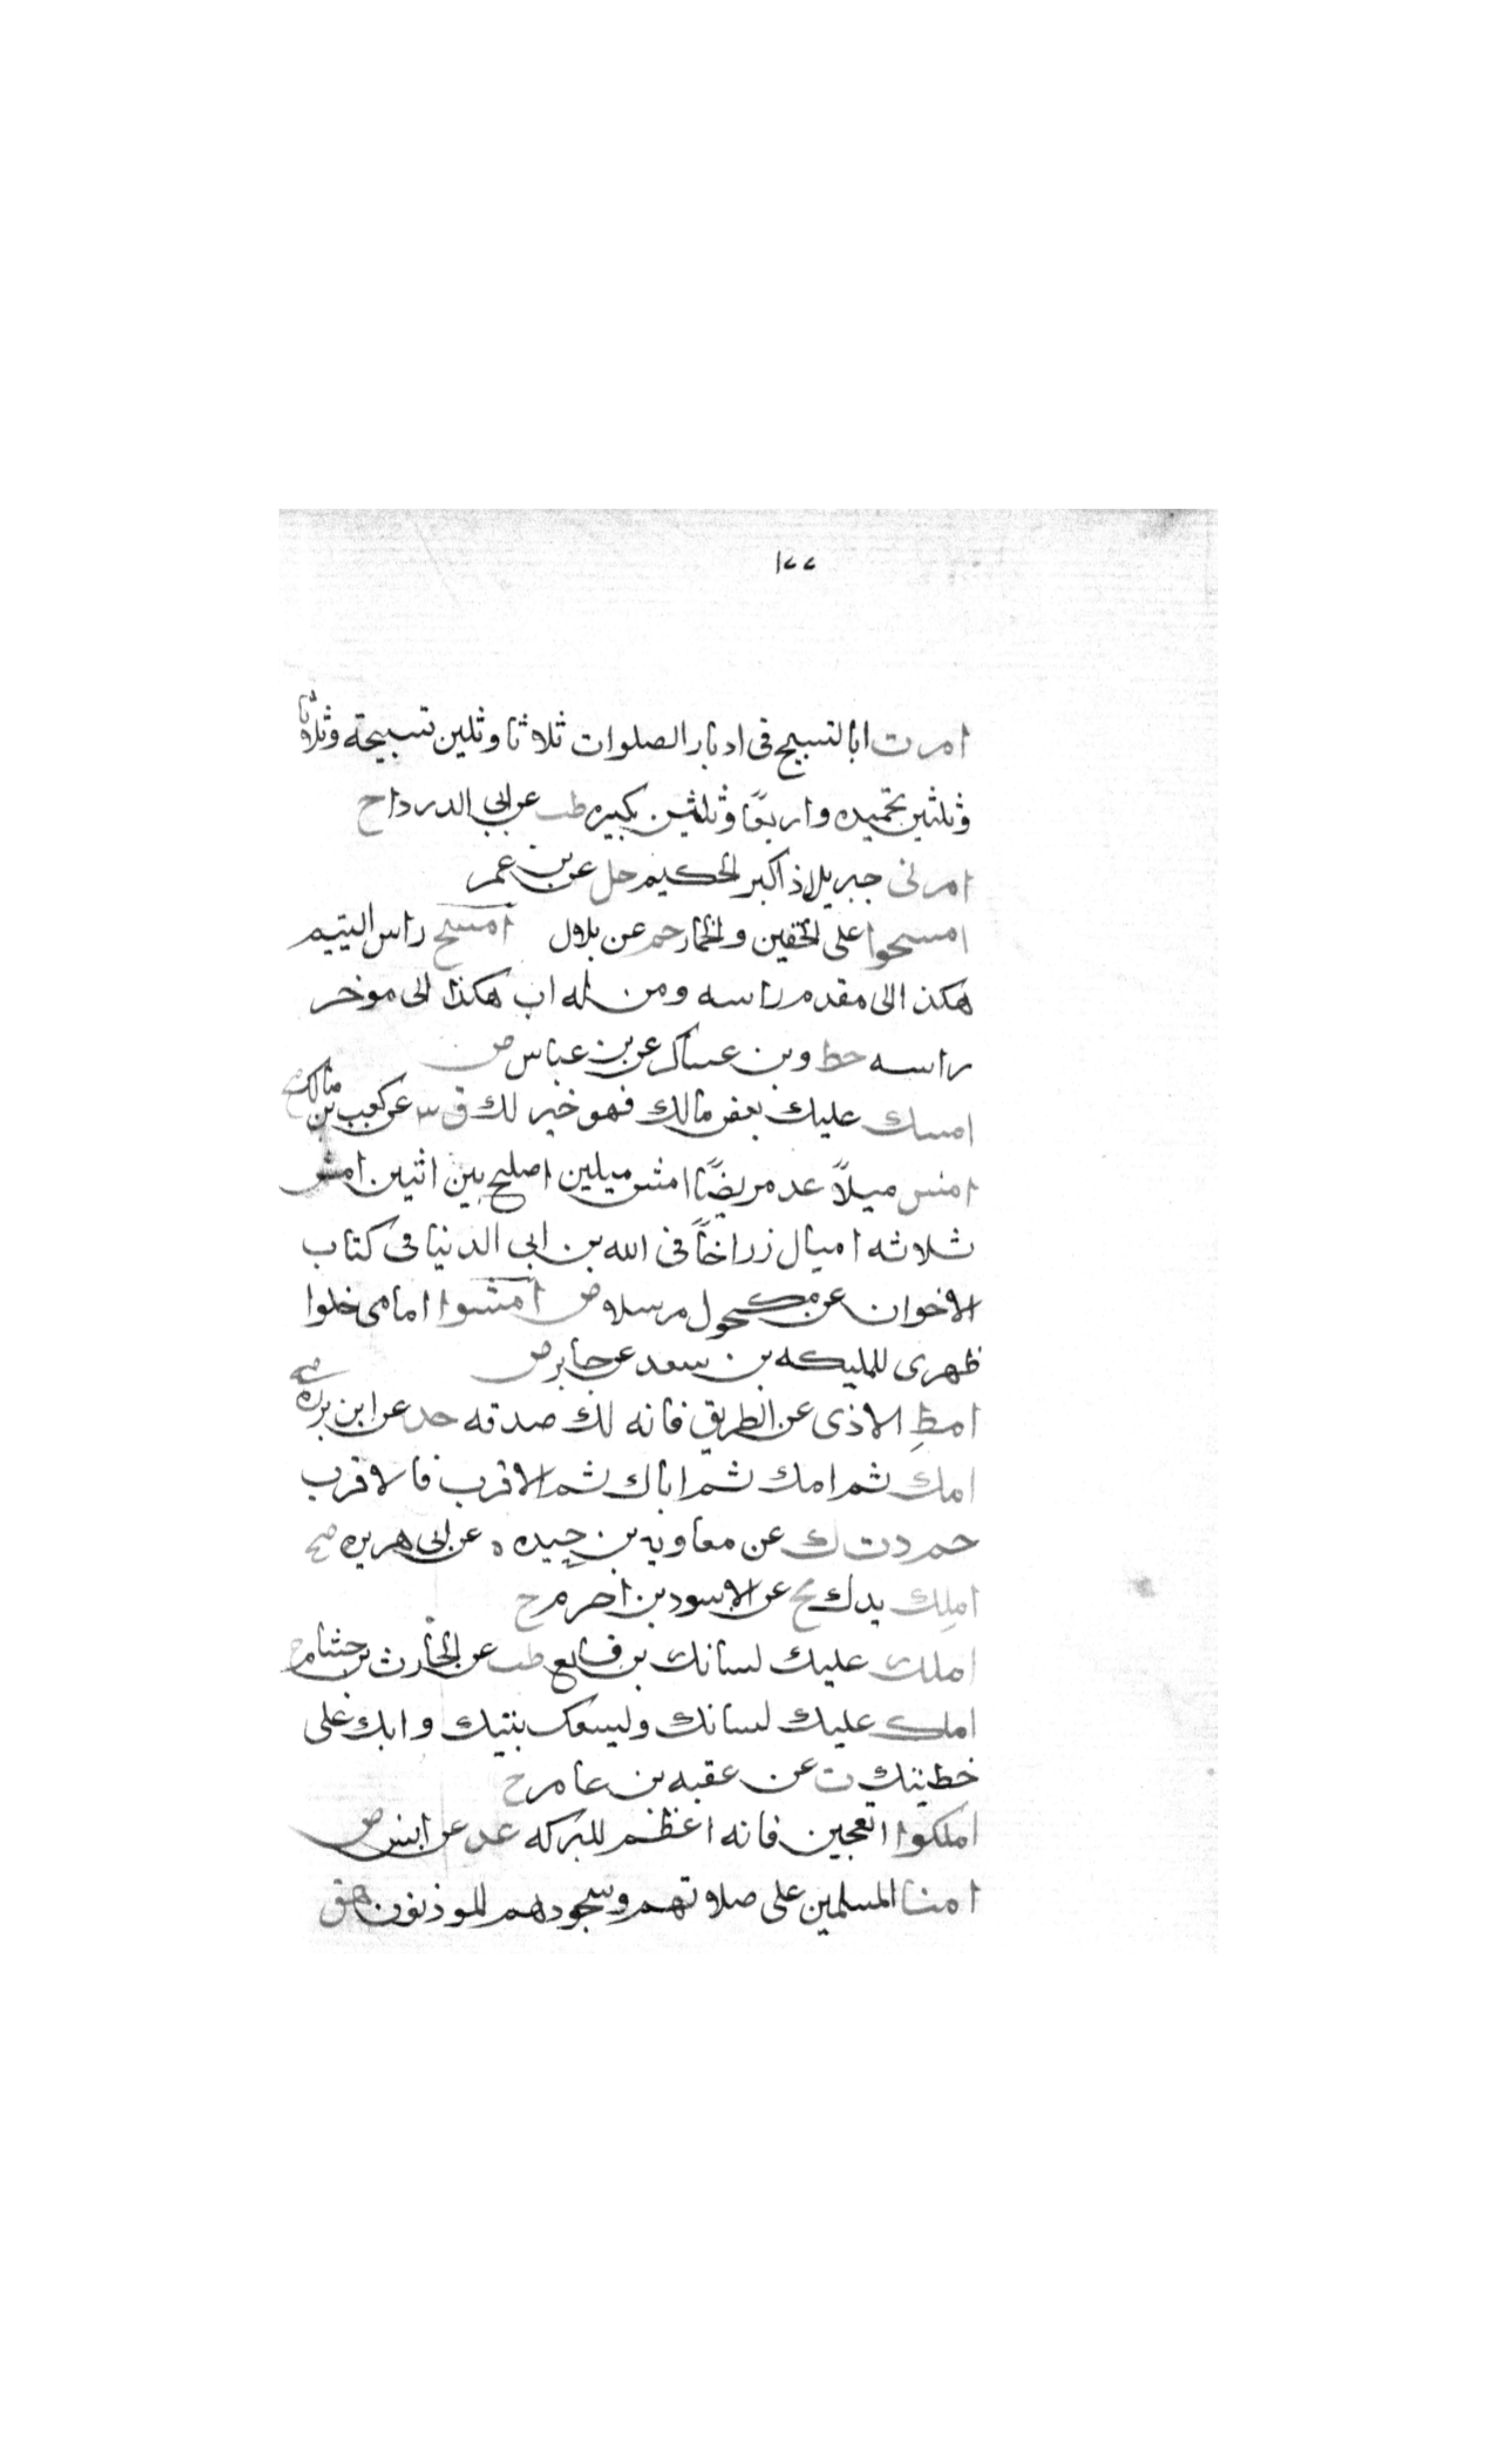 ١٢٢
امرت ابالتسبيح فى ادبار الصلوات ثلاثا وثلين تسبيحة وثلاثا
وثلثين تحميده واربعًا وثلثين تكبيره طب عن ابى الدرداح
امرنى جبريل اذ اكبر الحكيم حل عن بن عمر
امسحوا على الخفين والخمار حم عن بلال امسح راس اليتيم
هكذا الى مقدم راسه ومن له اب هكذا الى موخر
راسه خط وبن عساكر عن بن عباس ض
امسك عليك بعض مالك فهو خير لك ق س عن كعب بن مالك صح
امش ميلاً عد مريضًا امش ميلين اصلح بين اثنين امش
ثلاثه اميال زر اخاً فى الله بن ابى الدنيا فى كتاب
الاخوان عن مكحول مرسلا ض امشوا امامى خلوا
ظهرى للمليكه بن سعد عن جابر ض
امطِ الاذى عن الطريق فانه لك صدقه خد عن ابن برزه صح
امك ثم امك ثم اباك ثم الاقرب فالاقرب
حم د ت ك عن معاويه بن حيده ه عن ابى هريره صح
املِك يدك تخ عن الاسود بن اصرم ح
املك عليك لسانك بن قانع طب عن الحارث بن هشام ح
املك عليك لسانك وليسعك بيتيك وابك على
خطيتك ت عن عقبه بن عامر ح
املكوا العجين فانه اعظم للبركه عد عن انس ض
امنا المسلمين على صلاتهم وسجودهم الموذنون هق